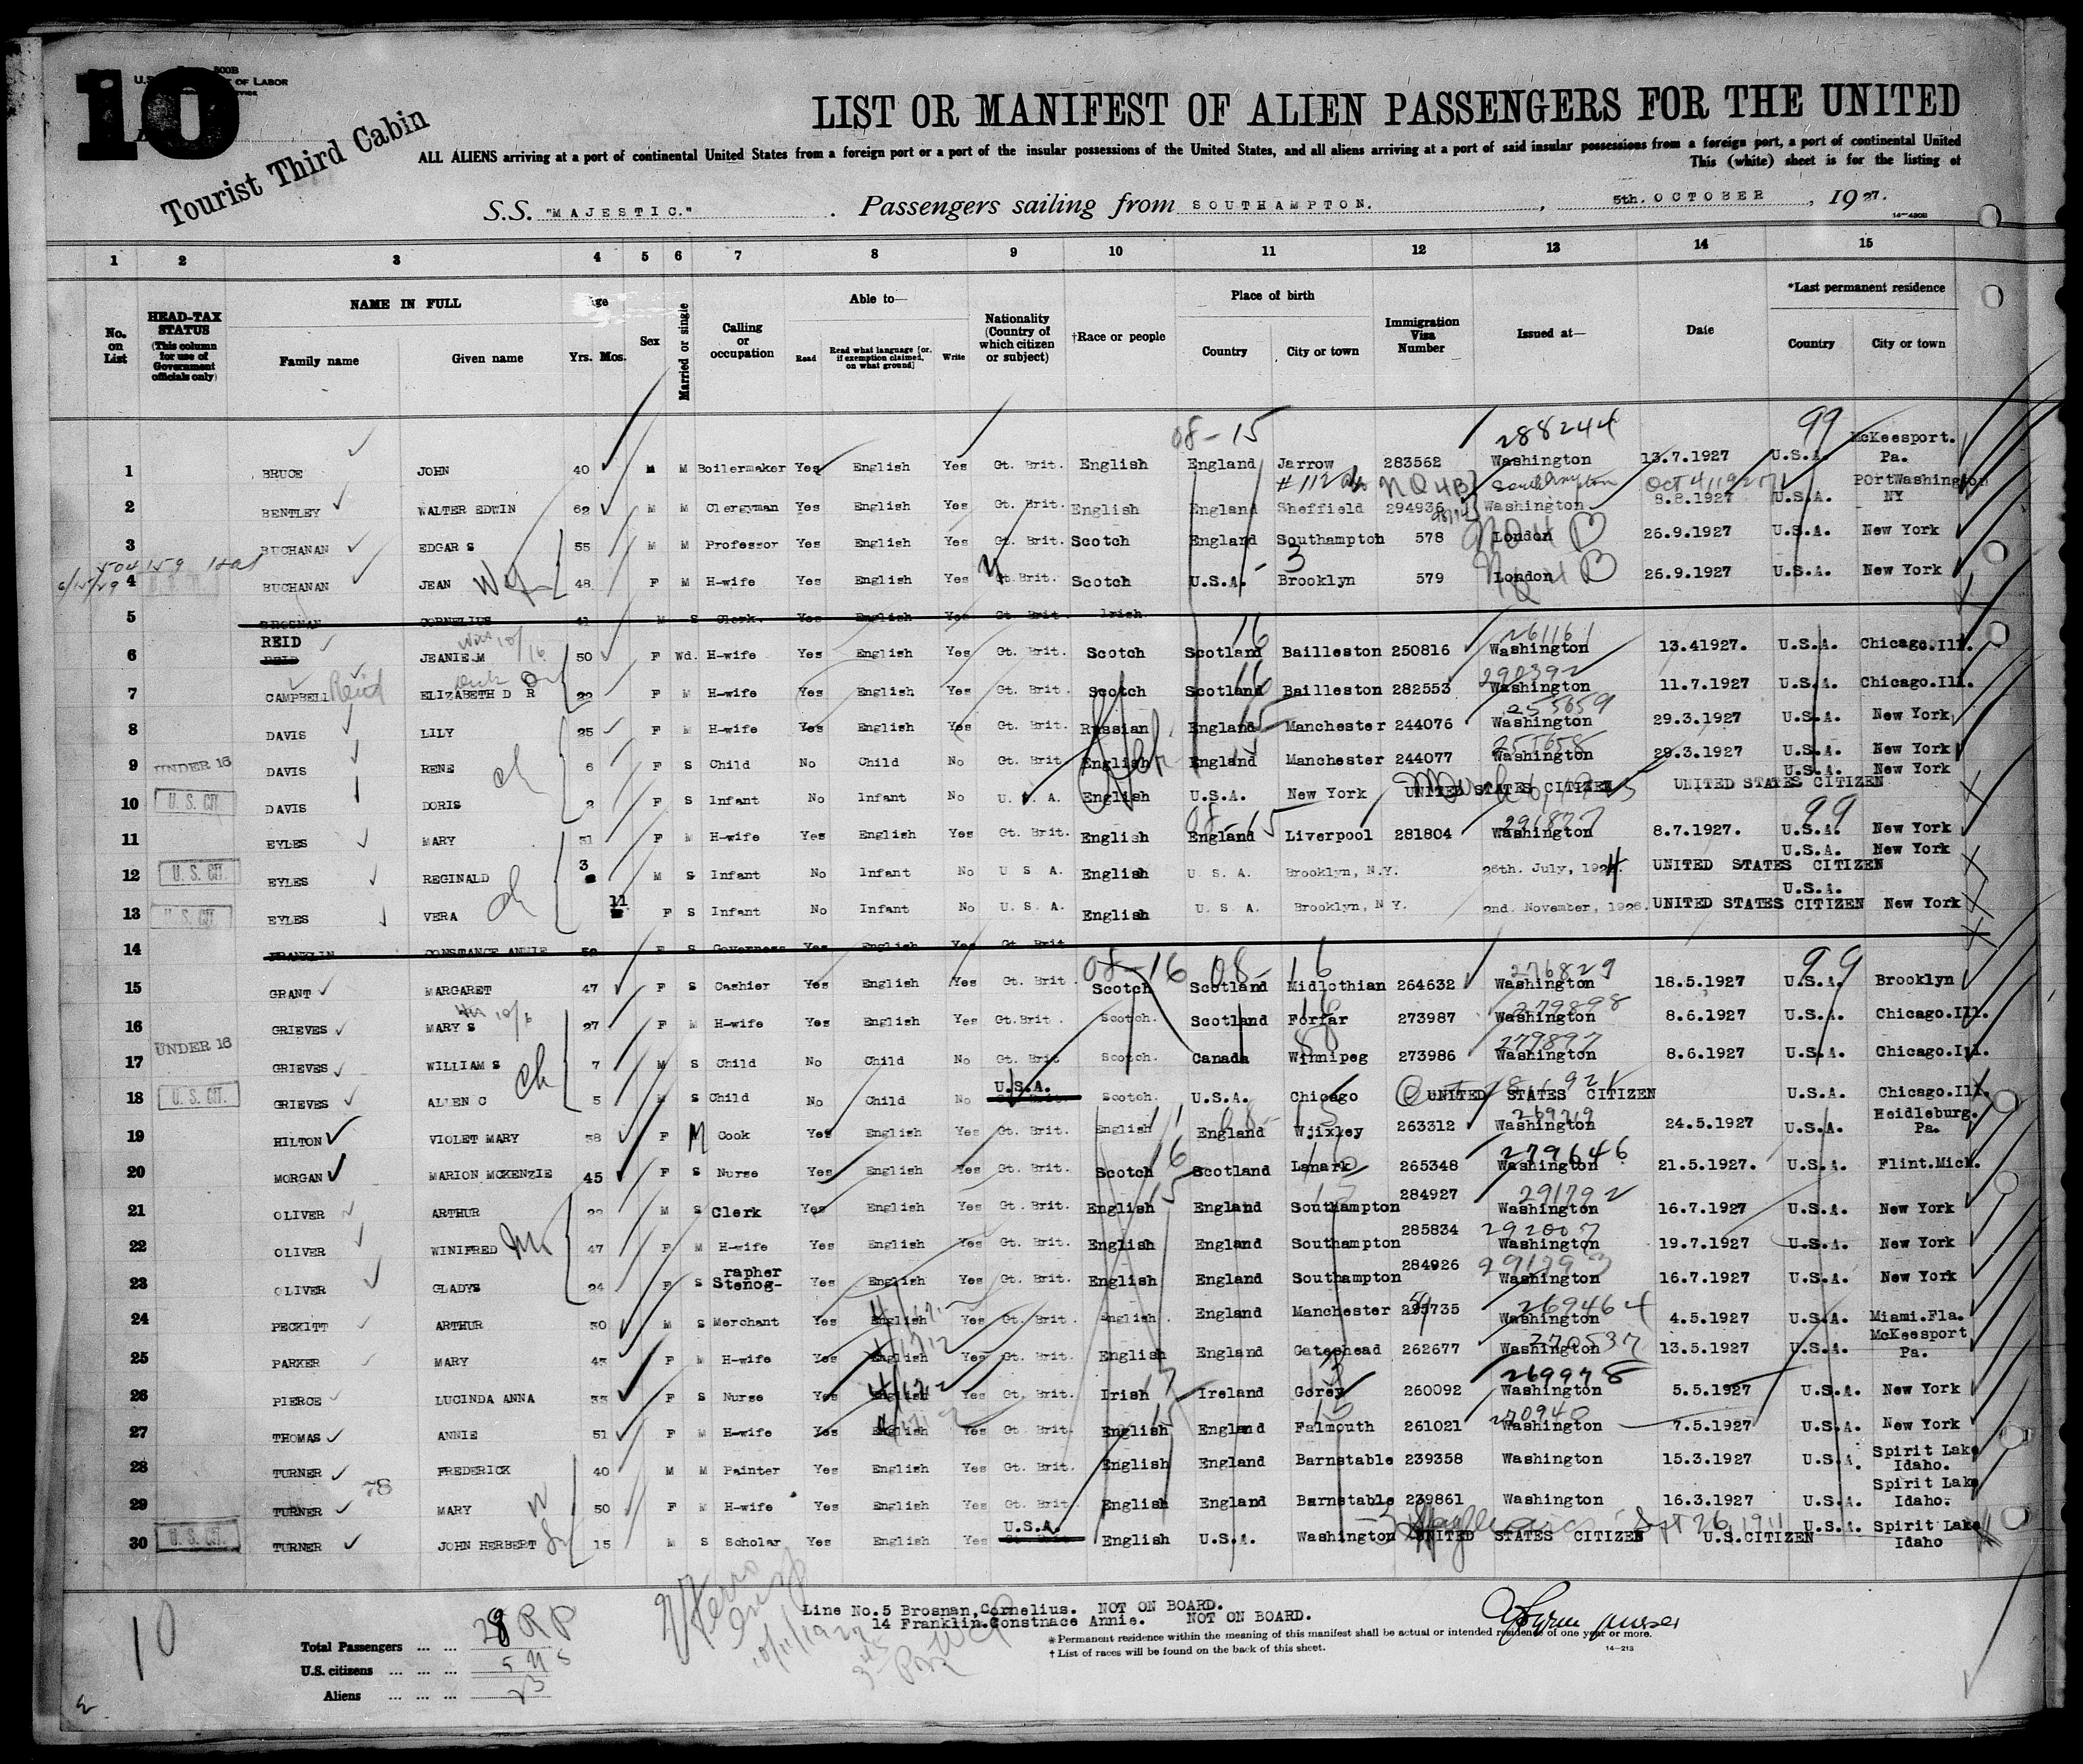 10
Tourist Third Cabin
LIST OR MANIFEST OF ALIEN PASSENGERS FOR THE UNITED
ALL ALIENS arriving at a port of continental United States from a foreign port or a port of the insular possessions of the United States, and all aliens arriving at a port of said insular possessions from a foreign port, a port of continental United
This (white) sheet is for the listing of
S.S. "MAJESTIC." Passengers sailing from SOUTHAMPTON. , 5th. OCTOBER , 1927.
1 2 3 4 5 6 7 8 9 10 11 12 13 14 15
No. on List
HEAD-TAX STATUS (This column for use of Government officials only)
NAME IN FULL Family name Given name
Age Yrs. Mos.
Sex
Married or single
Calling or occupation
Able to— Read Read what language [or, if exemption claimed, on what ground] Write
Nationality (Country of which citizen or subject)
†Race or people
Place of birth Country City or town
Immigration Visa Number
Issued at—
Date
*Last permanent residence Country City or town
08-15 288244 99
1 BRUCE JOHN 40 M M Boilermaker Yes English Yes Gt. Brit. English England Jarrow 283562 Washington 13.7.1927 U.S.A. McKeesport. Pa.
2 BENTLEY WALTER EDWIN 62 M M Clergyman Yes English Yes Gt. Brit. English England Sheffield 294936 Washington 8.8.1927 U.S.A. PortWashington NY
3 BUCHANAN EDGAR S 55 M M Professor Yes English Yes Gt. Brit. Scotch England Southampton 578 London 26.9.1927 U.S.A. New York
4 BUCHANAN JEAN 48 F M H-wife Yes English Yes Gt. Brit. Scotch U.S.A. Brooklyn 579 London 26.9.1927 U.S.A. New York
5 BROSNAN CORNELIUS 41 M S Clerk. Yes English Yes Gt. Brit. Irish
6 REID JEANIE M 50 F Wd. H-wife Yes English Yes Gt. Brit. Scotch Scotland Bailleston 250816 261161 Washington 13.41927. U.S.A. Chicago.Ill.
7 CAMPBELL Reid ELIZABETH D R 22 F M H-wife Yes English Yes Gt. Brit. Scotch Scotland Bailleston 282553 290392 Washington 11.7.1927 U.S.A. Chicago.Ill.
8 DAVIS LILY 25 F M H-wife Yes English Yes Gt. Brit. Russian England Manchester 244076 255659 Washington 29.3.1927 U.S.A. New York
9 UNDER 16 DAVIS RENE 6 F S Child No Child No Gt. Brit. English England Manchester 244077 255658 Washington 29.3.1927 U.S.A. New York
10 U.S. CIT. DAVIS DORIS 2 F S Infant No Infant No U.S.A. English U.S.A. New York UNITED STATES CITIZEN UNITED STATES CITIZEN U.S.A. New York
11 EYLES MARY 31 F M H-wife Yes English Yes Gt. Brit. English England Liverpool 281804 291877 Washington 8.7.1927. U.S.A. New York
12 U.S. CIT. EYLES REGINALD 3 M S Infant No Infant No U S A. English U. S. A. Brooklyn, N.Y. 26th. July, 1924. UNITED STATES CITIZEN U.S.A. New York
13 U.S. CIT. EYLES VERA 11 F S Infant No Infant No U.S.A. English U. S. A. Brooklyn, N Y. 2nd. November, 1926. UNITED STATES CITIZEN U.S.A. New York
14 FRANKLIN CONSTANCE ANNIE 52 F S Governess Yes English Yes Gt. Brit
08-16 08- 16 99
15 GRANT MARGARET 47 F S Cashier Yes English Yes Gt. Brit Scotch Scotland Midlothian 264632 276829 Washington 18.5.1927 U.S.A. Brooklyn
16 GRIEVES MARY S 27 F M H-wife Yes English Yes Gt.Brit. Scotch. Scotland Forfar 273987 279898 Washington 8.6.1927 U.S.A. Chicago.Ill.
17 UNDER 16 GRIEVES WILLIAM S 7 M S Child No Child No Gt. Brit Scotch. Canada Winnipeg 273986 279897 Washington 8.6.1927 U.S.A. Chicago.Ill.
18 U.S. CIT. GRIEVES ALLEN C 5 M S Child No Child No U.S.A. Scotch. U.S.A. Chicago UNITED STATES CITIZEN U.S.A. Chicago.Ill.
19 HILTON VIOLET MARY 38 F M Cook Yes English Yes Gt. Brit. English England Wjixley 263312 269719 Washington 24.5.1927 U.S.A. Heidleburg. Pa.
20 MORGAN MARION MCKENZIE 45 F S Nurse Yes English Yes Gt. Brit. Scotch Scotland Lanark 265348 279646 Washington 21.5.1927. U.S.A. Flint.Mich.
21 OLIVER ARTHUR 22 M S Clerk Yes English Yes Gt. Brit. English England Southampton 284927 291792 Washington 16.7.1927 U.S.A. New York
22 OLIVER WINIFRED 47 F M H-wife Yes English Yes Gt. Brit. English England Southampton 285834 292007 Washington 19.7.1927 U.S.A. New York
23 OLIVER GLADYS 24 F S Stenog-rapher Yes English Yes Gt. Brit. English England Southampton 284926 291793 Washington 16.7.1927 U.S.A. New York
24 PECKITT ARTHUR 30 M S Merchant Yes English Yes Gt. Brit. English. England Manchester 269464 Washington 4.5.1927 U.S.A. Miami.Fla.
25 PARKER MARY 43 F M H-wife Yes English Yes Gt. Brit. English England Gateshead 262677 270537 Washington 13.5.1927 U.S.A. McKeesport Pa.
26 PIERCE LUCINDA ANNA 33 F S Nurse Yes English Yes Gt. Brit. Irish Ireland Gorey 260092 269978 Washington 5.5.1927 U.S.A. New York
27 THOMAS ANNIE 51 F M H-wife Yes English Yes Gt. Brit. English England Falmouth 261021 270940 Washington 7.5.1927 U.S.A. New York
28 TURNER FREDERICK 40 M M Painter Yes English Yes Gt. Brit. English England Barnstable 239358 Washington 15.3.1927 U.S.A. Spirit Lake Idaho.
29 TURNER MARY 50 F M H-wife Yes English Yes Gt. Brit. English England Barnstable 239861 Washington 16.3.1927 U.S.A. Spirit Lake Idaho.
30 U.S. CIT. TURNER JOHN HERBERT 15 M S Scholar Yes English Yes U.S.A. English U.S.A. Washington UNITED STATES CITIZEN Sept 26, 1911 U.S.CITIZEN U.S.A. Spirit Lake Idaho
Line No.5 Brosnan,Cornelius. NOT ON BOARD.
14 Franklin.Constnace Annie. NOT ON BOARD.
10
Total Passengers ... ... 28 RP
U.S. citizens ... ... ... 5
Aliens ... ... ... 23
*Permanent residence within the meaning of this manifest shall be actual or intended residence of one year or more.
†List of races will be found on the back of this sheet.
14-213